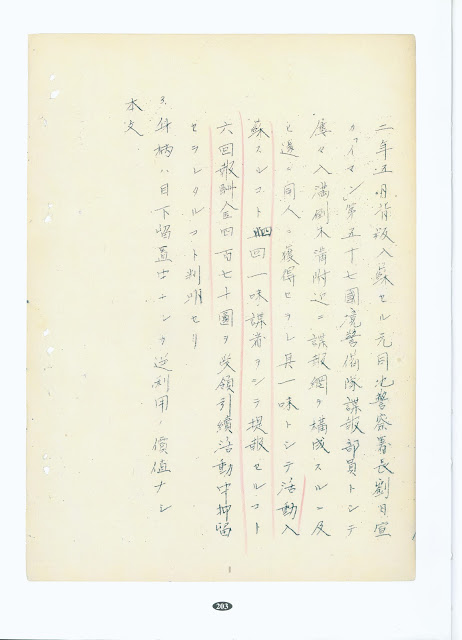 二年五月背叛入蘇セル元同江警察署長劉日宣
カ「イマン」第五十七國境警備隊諜報部員トシテ
屡々入満倒木溝附近ニ諜報網ヲ構成スルニ及
ヒ遂ニ同人ニ獲得セラレ其一味トシテ活動入
蘇スルコト四回一味諜者ヲシテ提報セルコト
六回報酬金四百七十圓ヲ受領引續活動中抑留
セラレタルコト判明セリ
3. 身柄ハ目下留置中ナシテ逆利用ノ價値ナシ
本文
203